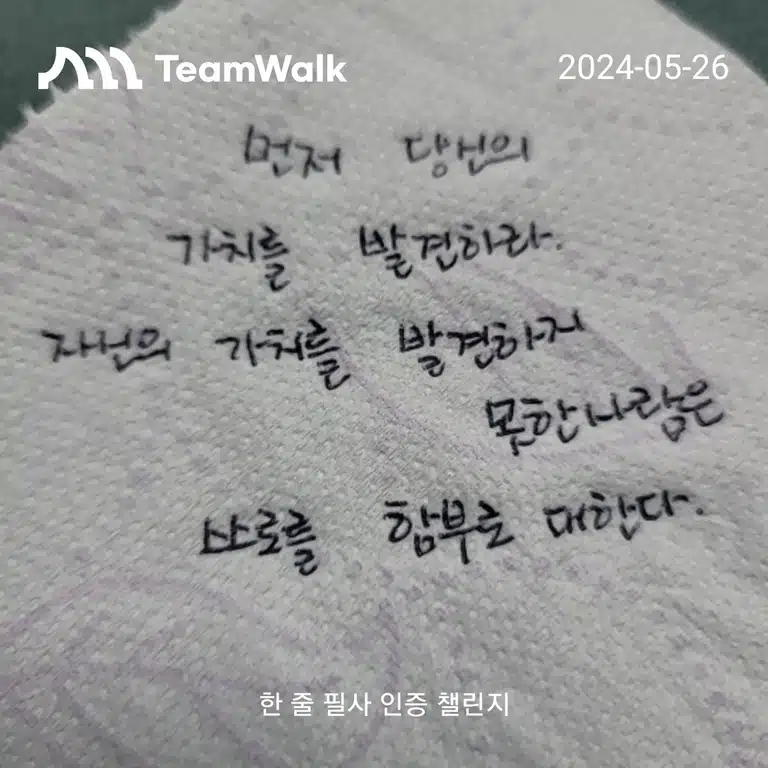 TeamWalk 2024-05-26
먼저 당신의
가치를 발견하라.
자신의 가치를 발견하지
못한사람은
스스로를 함부로 대한다.
한 줄 필사 인증 챌린지